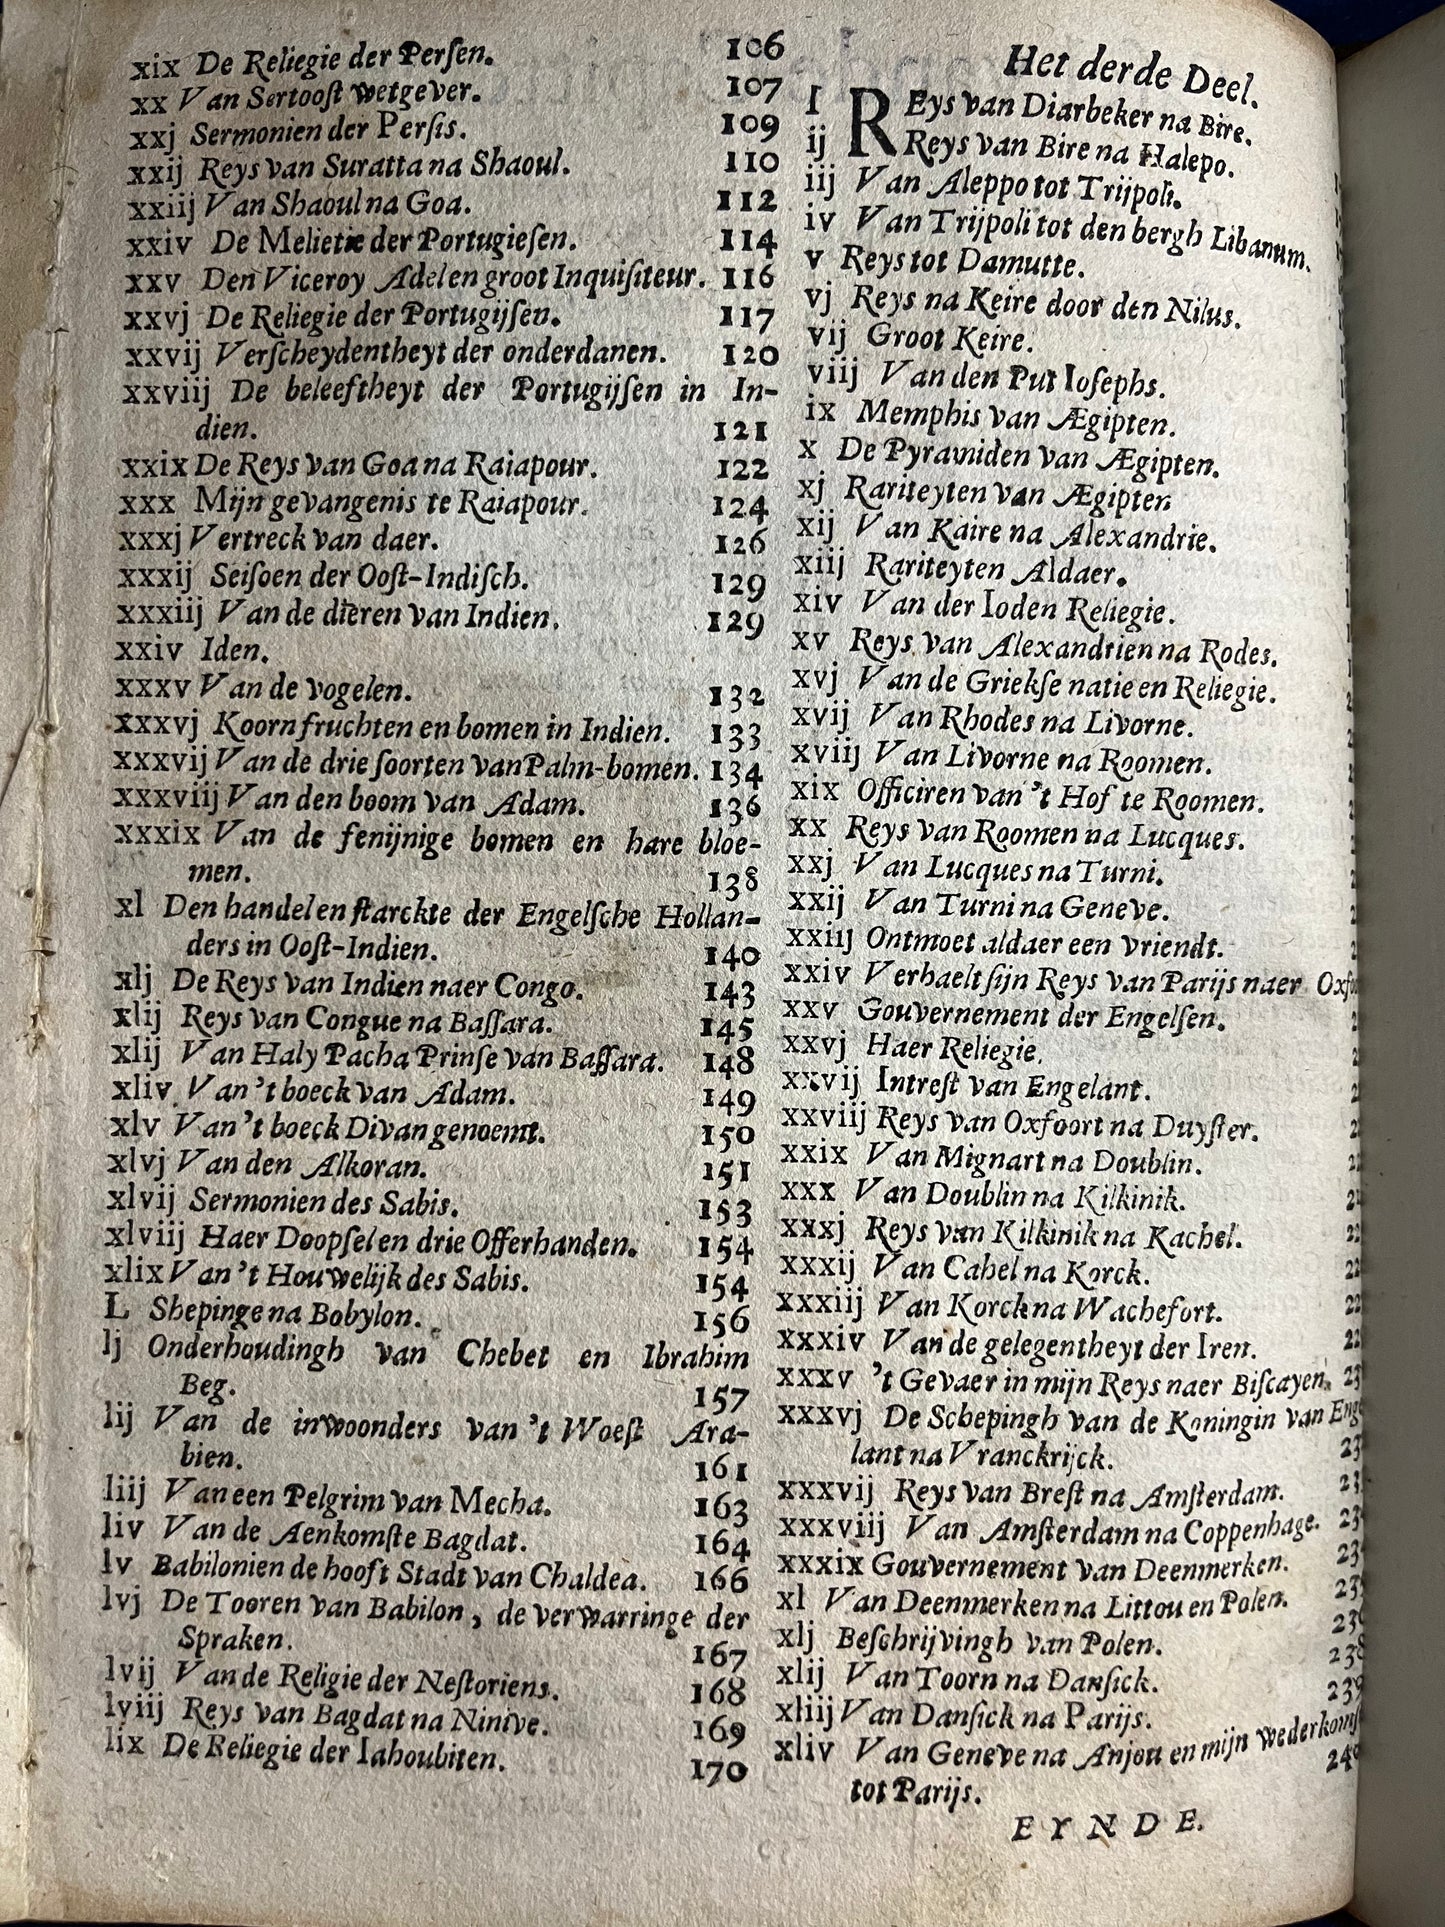 xix De Reliegie der Perſen. 106
xx Van Sertooſt wetgever. 107
xxj Sermonien der Perſis. 109
xxij Reys van Suratta na Shaoul. 110
xxiij Van Shaoul na Goa. 112
xxiv De Melietie der Portugieſen. 114
xxv Den Viceroy Adel en groot Inquiſiteur. 116
xxvj De Reliegie der Portugijſen. 117
xxvij Verſcheydentheyt der onderdanen. 120
xxviij De beleeftheyt der Portugijſen in In-
dien. 121
xxix De Reys van Goa na Raiapour. 122
xxx Mijn gevangenis te Raiapour. 124
xxxj Vertreck van daer. 126
xxxij Seiſoen der Ooſt-Indiſch. 129
xxxiij Van de dieren van Indien. 129
xxiv Iden.
xxxv Van de vogelen. 132
xxxvj Koorn fruchten en bomen in Indien. 133
xxxvij Van de drie ſoorten van Palm-bomen. 134
xxxviij Van den boom van Adam. 136
xxxix Van de fenijnige bomen en hare bloe-
men. 138
xl Den handel en ſtarckte der Engelſche Hollan-
ders in Ooſt-Indien. 140
xlj De Reys van Indien naer Congo. 143
xlij Reys van Congue na Baſſara. 145
xlij Van Haly Pacha Prinſe van Baſſara. 148
xliv Van 't boeck van Adam. 149
xlv Van 't boeck Divan genoemt. 150
xlvj Van den Alkoran. 151
xlvij Sermonien des Sabis. 153
xlviij Haer Doopſel en drie Offerhanden. 154
xlix Van 't Houwelijk des Sabis. 154
L Shepinge na Bobylon. 156
lj Onderhoudingh van Chebet en Ibrahim
Beg. 157
lij Van de inwoonders van 't Woeſt Ara-
bien. 161
liij Van een Pelgrim van Mecha. 163
liv Van de Aenkomſte Bagdat. 164
lv Babilonien de hooft Stadt van Chaldea. 166
lvj De Tooren van Babilon, de verwarringe der
Spraken. 167
lvij Van de Religie der Neſtoriens. 168
lviij Reys van Bagdat na Ninive. 169
lix De Reliegie der Iahoubiten. 170
Het derde Deel.
I REys van Diarbeker na Bire.
ij Reys van Bire na Halepo.
iij Van Aleppo tot Trijpoli.
iv Van Trijpoli tot den bergh Libanum.
v Reys tot Damutte.
vj Reys na Keire door den Nilus.
vij Groot Keire.
viij Van den Put Ioſephs.
ix Memphis van Ægipten.
x De Pyramiden van Ægipten.
xj Rariteyten van Ægipten
xij Van Kaire na Alexandrie.
xiij Rariteyten Aldaer.
xiv Van der Ioden Reliegie.
xv Reys van Alexandrien na Rodes.
xvj Van de Griekſe natie en Reliegie.
xvij Van Rhodes na Livorne.
xviij Van Livorne na Roomen.
xix Officiren van 't Hof te Roomen.
xx Reys van Roomen na Lucques.
xxj Van Lucques na Turni.
xxij Van Turni na Geneve.
xxiij Ontmoet aldaer een vriendt.
xxiv Verhaelt ſijn Reys van Parijs naer
xxv Gouvernement der Engelſen.
xxvj Haer Reliegie.
xxvij Intreſt van Engelant.
xxviij Reys van Oxfoort na Duyſter.
xxix Van Mignart na Doublin.
xxx Van Doublin na Kilkinik.
xxxj Reys van Kilkinik na Kachel.
xxxij Van Cahel na Korck.
xxxiij Van Korck na Wachefort.
xxxiv Van de gelegentheyt der Iren.
xxxv 't Gevaer in mijn Reys naer Biſcayen.
xxxvj De Schepingh van de Koningin van
lant na Vranckrijck.
xxxvij Reys van Breſt na Amſterdam.
xxxviij Van Amſterdam na Coppenhage.
xxxix Gouvernement van Deenmerken.
xl Van Deenmerken na Littou en Polen.
xlj Beſchrijvingh van Polen.
xlij Van Toorn na Danſick.
xliij Van Danſick na Parijs.
xliv Van Geneve na Anjou en mijn
tot Parijs.
EYNDE.